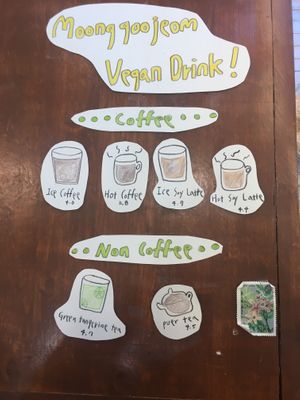 Moonggoojeom
Vegan Drink!
Coffee
Ice Coffee
Hot Coffee
Ice Soy Latte
Hot Soy Latte
4.0
3.8
4.9
4.4
Non Coffee
Green tangerine tea
puer tea
4.5